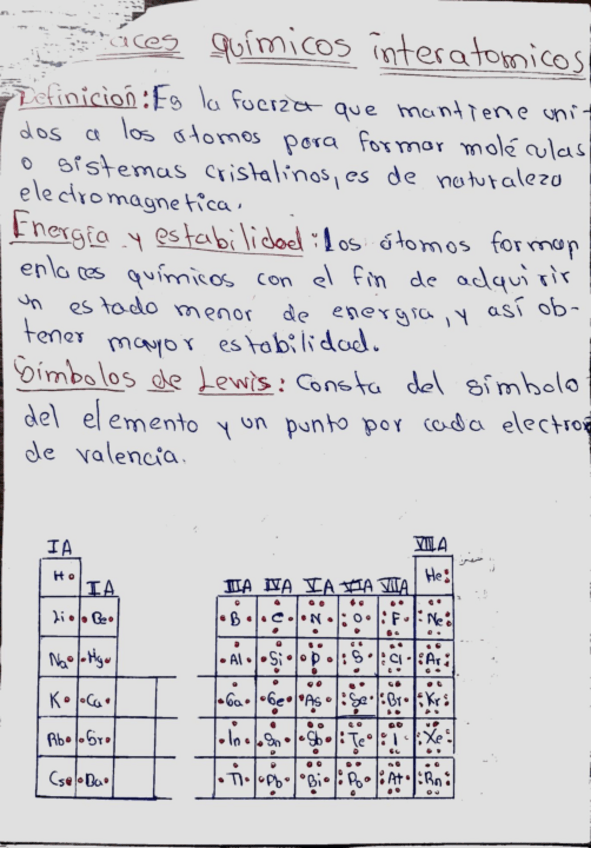 químicos interatomicos
Definición: Es la fuerza que mantiene uni-
dos a los átomos para formar moléculas
o sistemas cristalinos, es de naturaleza
electromagnetica.
Energía y estabilidad: Los átomos forman
enlaces químicos con el fin de adquirir
un estado menor de energía, y así ob-
tener mayor estabilidad.
Símbolos de Lewis: Consta del símbolo
del elemento y un punto por cada electron
de valencia.
IA VIIIA
H He
IA IIIA IVA VA VIA VIIA
Li Be B C N O F Ne
Na Mg Al Si P S Cl Ar
K Ca Ga Ge As Se Br Kr
Rb Sr In Sn Sb Te I Xe
Cs Ba Tl Pb Bi Po At Rn